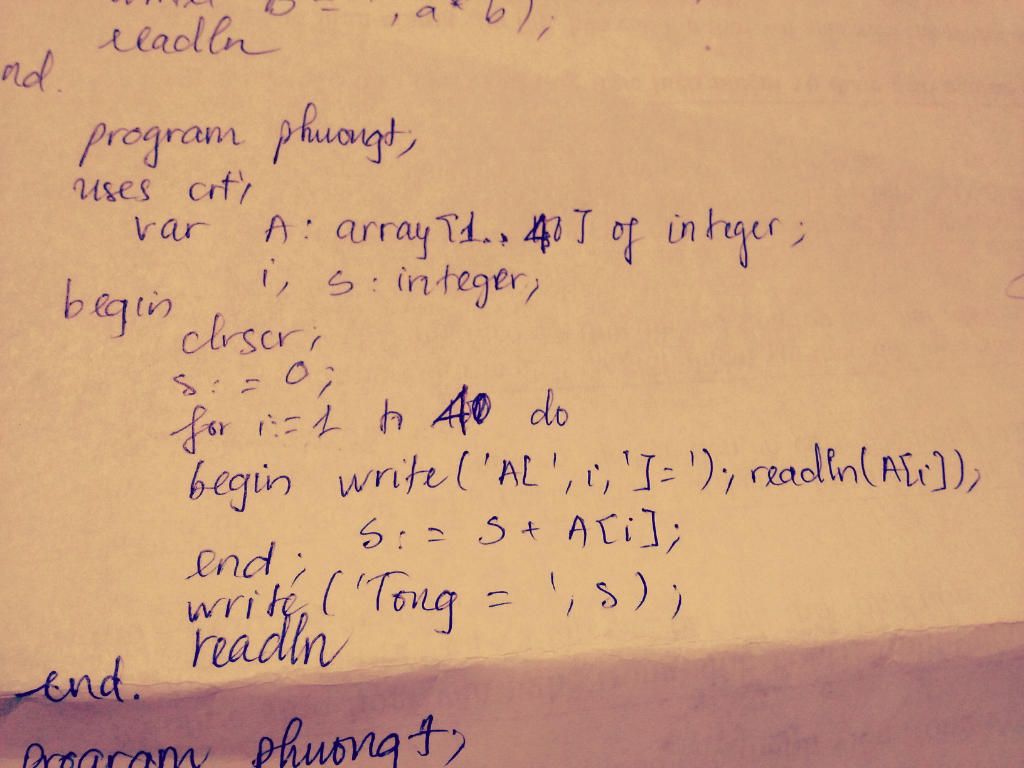 B = ', a * b);
readln
nd.
program phuongt;
uses crt;
var A: array [1.. 40] of integer;
i, s: integer;
begin
clrscr;
s: = 0;
for i:=1 to 40 do
begin write('A[', i, ']='); readln(A[i]);
s: = s + A[i];
end;
write ('Tong = ', s);
readln
end.
program phuongt;